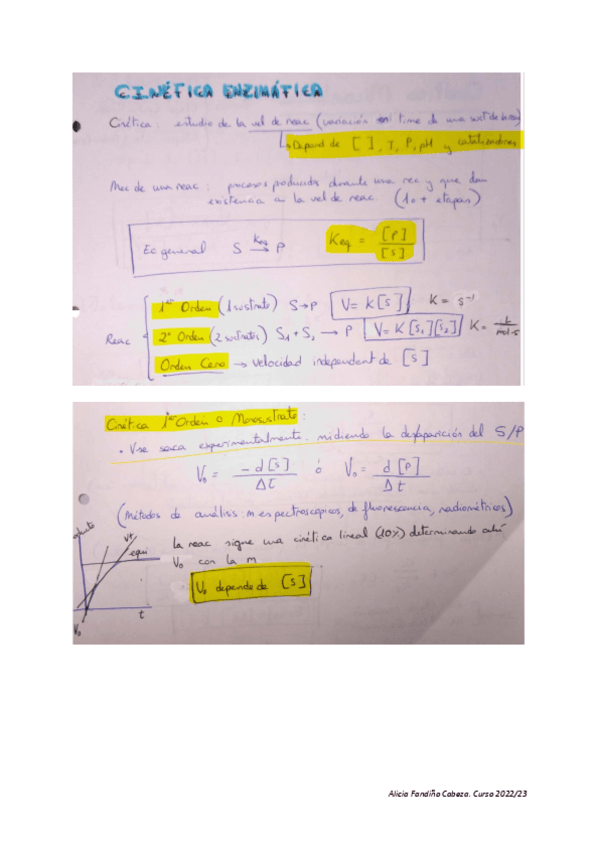 CINÉTICA ENZIMÁTICA
Cinética: estudio de la vel de reac (variación en time de una sust de
↳ Depend de [ ], T, P, pH y catalizadores
Mec de una reac: procesos producidos durante una rec y que dan
existencia a la vel de reac (1 o + etapas)
Ec general S Keq → P Keq = [P] / [S]
Reac
1er Orden (1 sustrato) S → P V = K[S] K = s⁻¹
2º Orden (2 sustratos) S1 + S2 → P V = K[S1][S2] K = / mol·s
Orden Cero → Velocidad independent de [S]
Cinética 1er Orden o Monosustrato:
• V se saca experimentalmente midiendo la desaparición del S/P
V₀ = -d[S] / Δt ó V₀ = d[P] / Δt
(Métodos de análisis: m espectroscópicos, de fluorescencia, radiométricos)
la reac sigue una cinética lineal (10%) determinando ahí
V₀ con la m
V₀ depende de [S]
equi
t
V₀
Alicia Fandiño Cabeza. Curso 2022/23